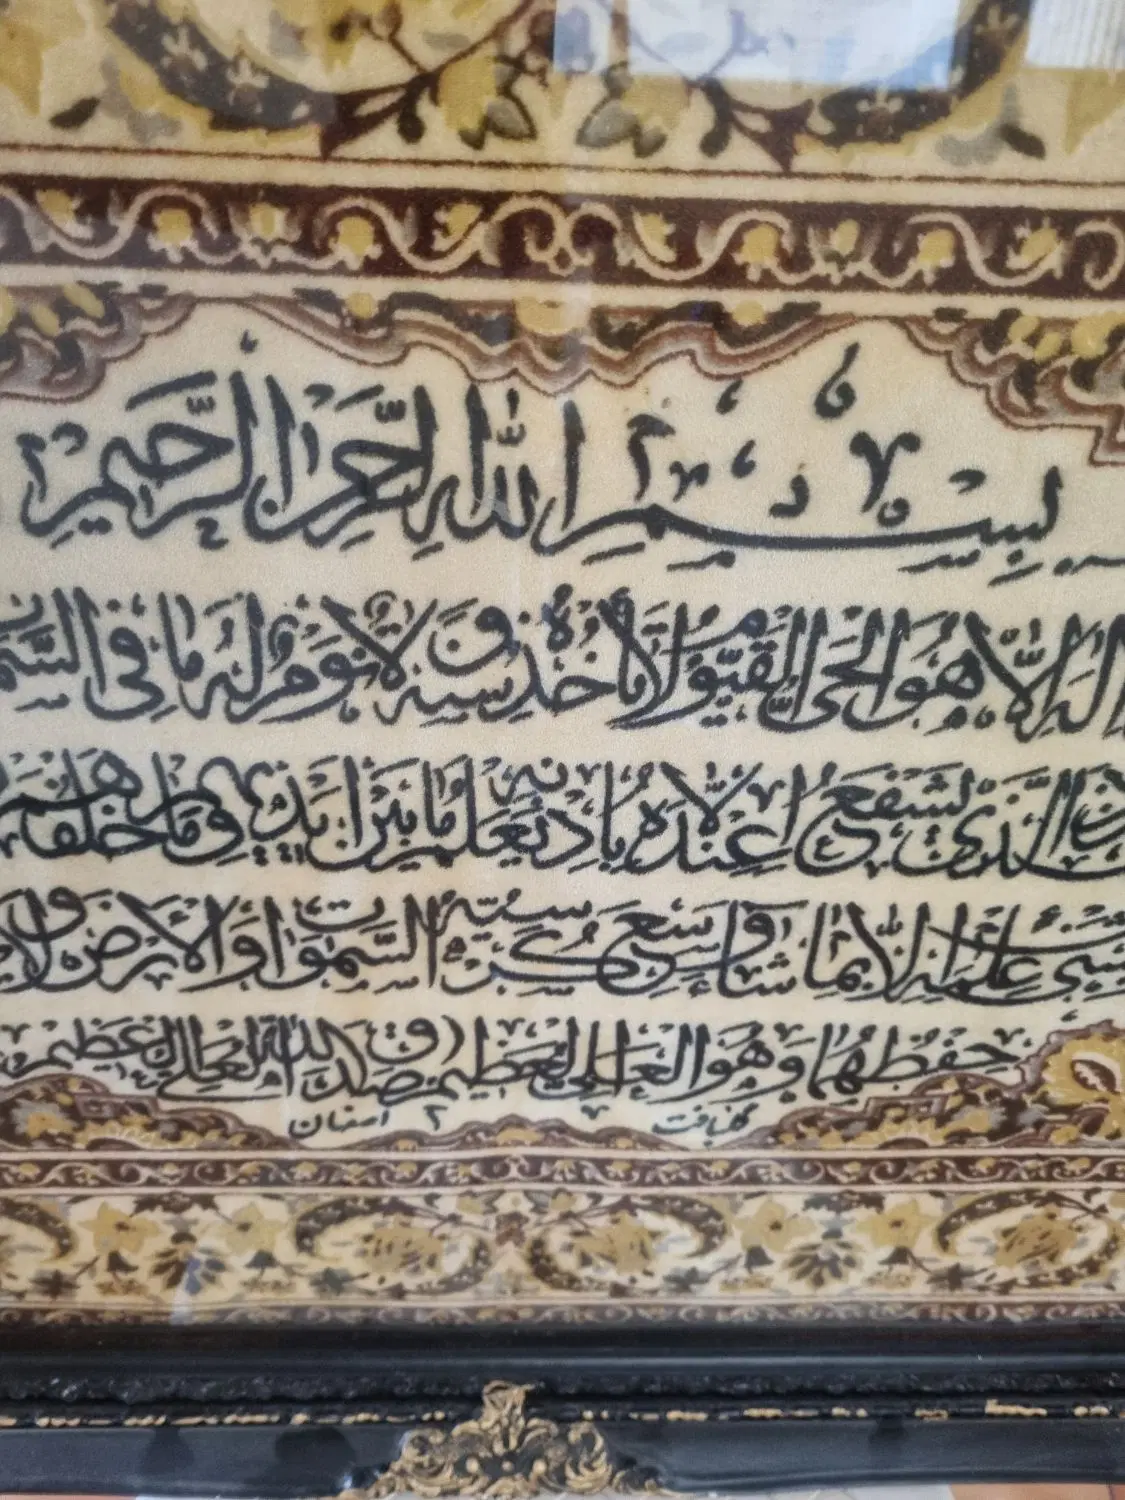 بِسْمِ اللهِ الرَّحْمنِ الرَّحِيمِ
اِلهَ اِلَّا هُوَ الْحَيُّ الْقَيُّومُ لَا تَأْخُذُهُ سِنَةٌ وَلَا نَوْمٌ لَهُ مَا فِي
الَّذِي يَشْفَعُ عِنْدَهُ اِلَّا بِاِذْنِهِ يَعْلَمُ مَا بَيْنَ اَيْدِيهِمْ وَمَا خَلْفَهُمْ
عِلْمِهِ اِلَّا بِمَا شَاءَ وَسِعَ كُرْسِيُّهُ السَّموَاتِ وَالْاَرْضَ وَلَا
حِفْظُهُمَا وَهُوَ الْعَلِيُّ الْعَظِيمُ صَدَقَ اللهُ الْعَلِيُّ الْعَظِيمُ
اصفهان